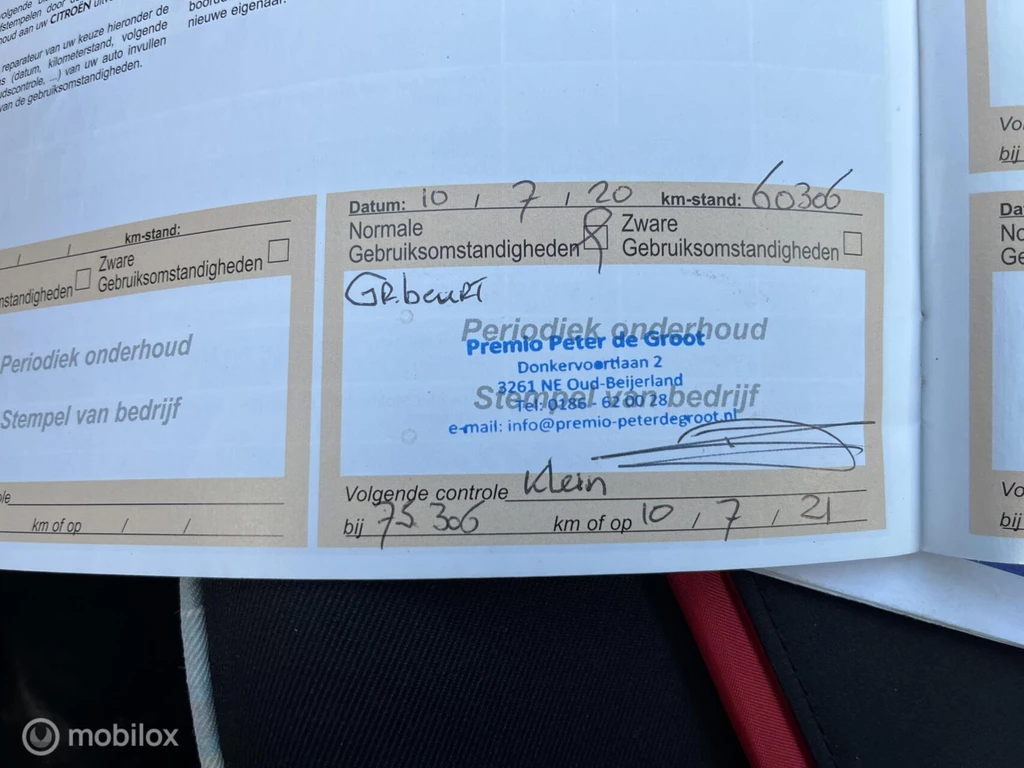 afstempelen door
aan uw CITROËN
nieuwe eigenaar.
reparateur van uw keuze hieronder de
(datum, kilometerstand, volgende
van uw auto invullen
van de gebruiksomstandigheden.
km-stand:
/ /
Zware
Gebruiksomstandigheden
Periodiek onderhoud
Stempel van bedrijf
km of op / /
Datum: 10 / 7 / 20 km-stand: 60306
Normale
Gebruiksomstandigheden
Zware
Gebruiksomstandigheden
GR.beurt
Periodiek onderhoud
Premio Peter de Groot
Donkervoortlaan 2
3261 NE Oud-Beijerland
Stempel van bedrijf
Tel: 0186 - 62 00 28
e-mail: info@premio-peterdegroot.nl
Volgende controle Klein
bij 75.306 km of op 10 / 7 / 21
bij
bij
mobilox